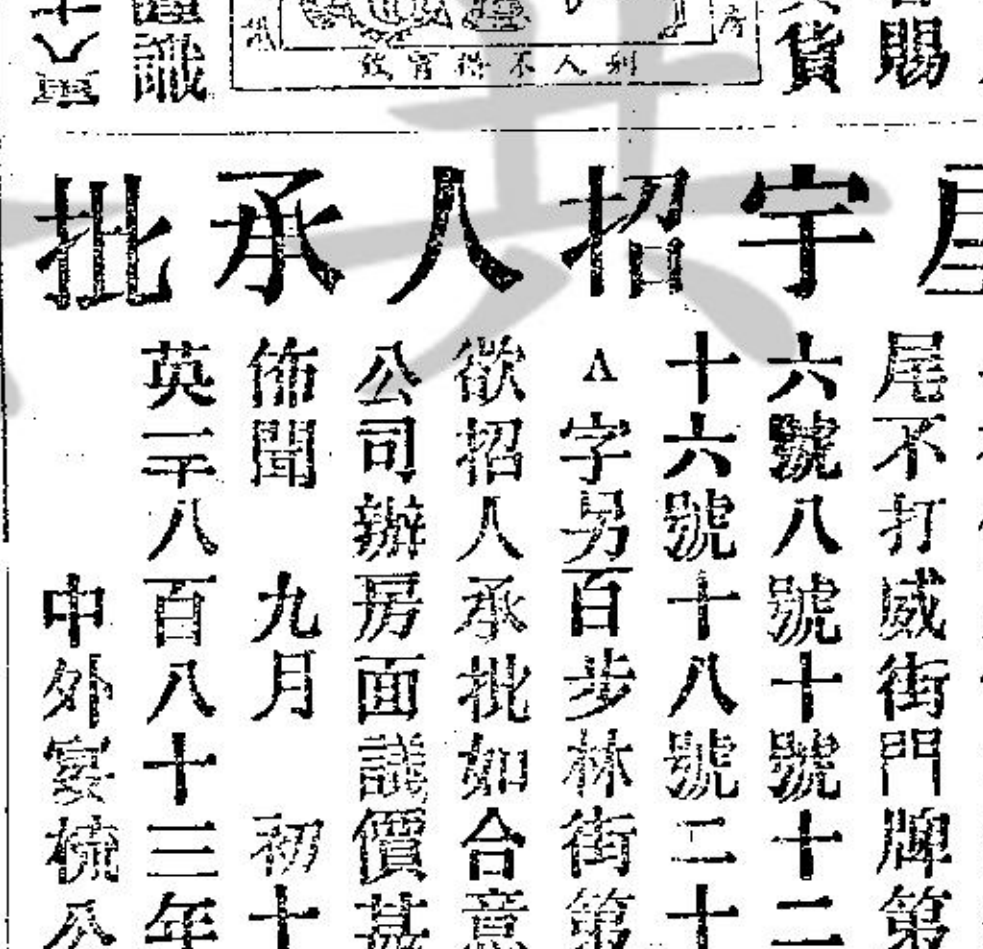 賜
貨
別人不得冒效
謹識
十八里
屋宇招人承批
尾不打威街門牌第
六號八號十號十二
十六號十八號二十
A字另百步林街第
欲招人承批如合意
公司辦房面議價甚
佈聞 九月 初十
英一千八百八十三年
中外宴梳公